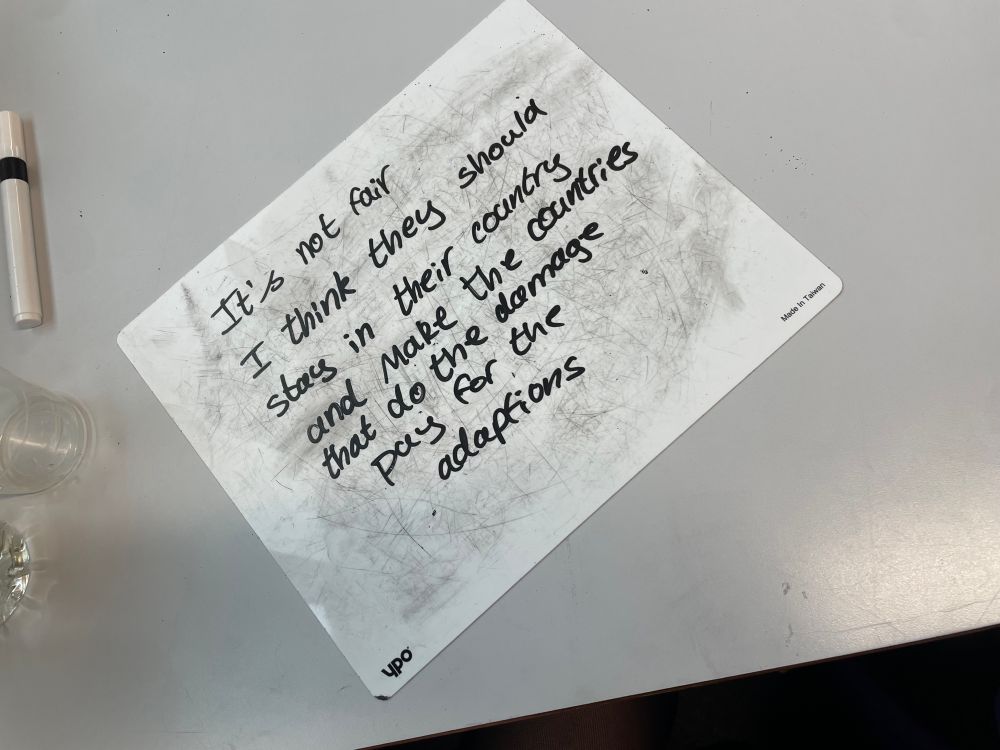 It's not fair
I think they should
stay in their country
and Make the countries
that do the damage
pay for the
adaptions
Made In Taiwan
ypo